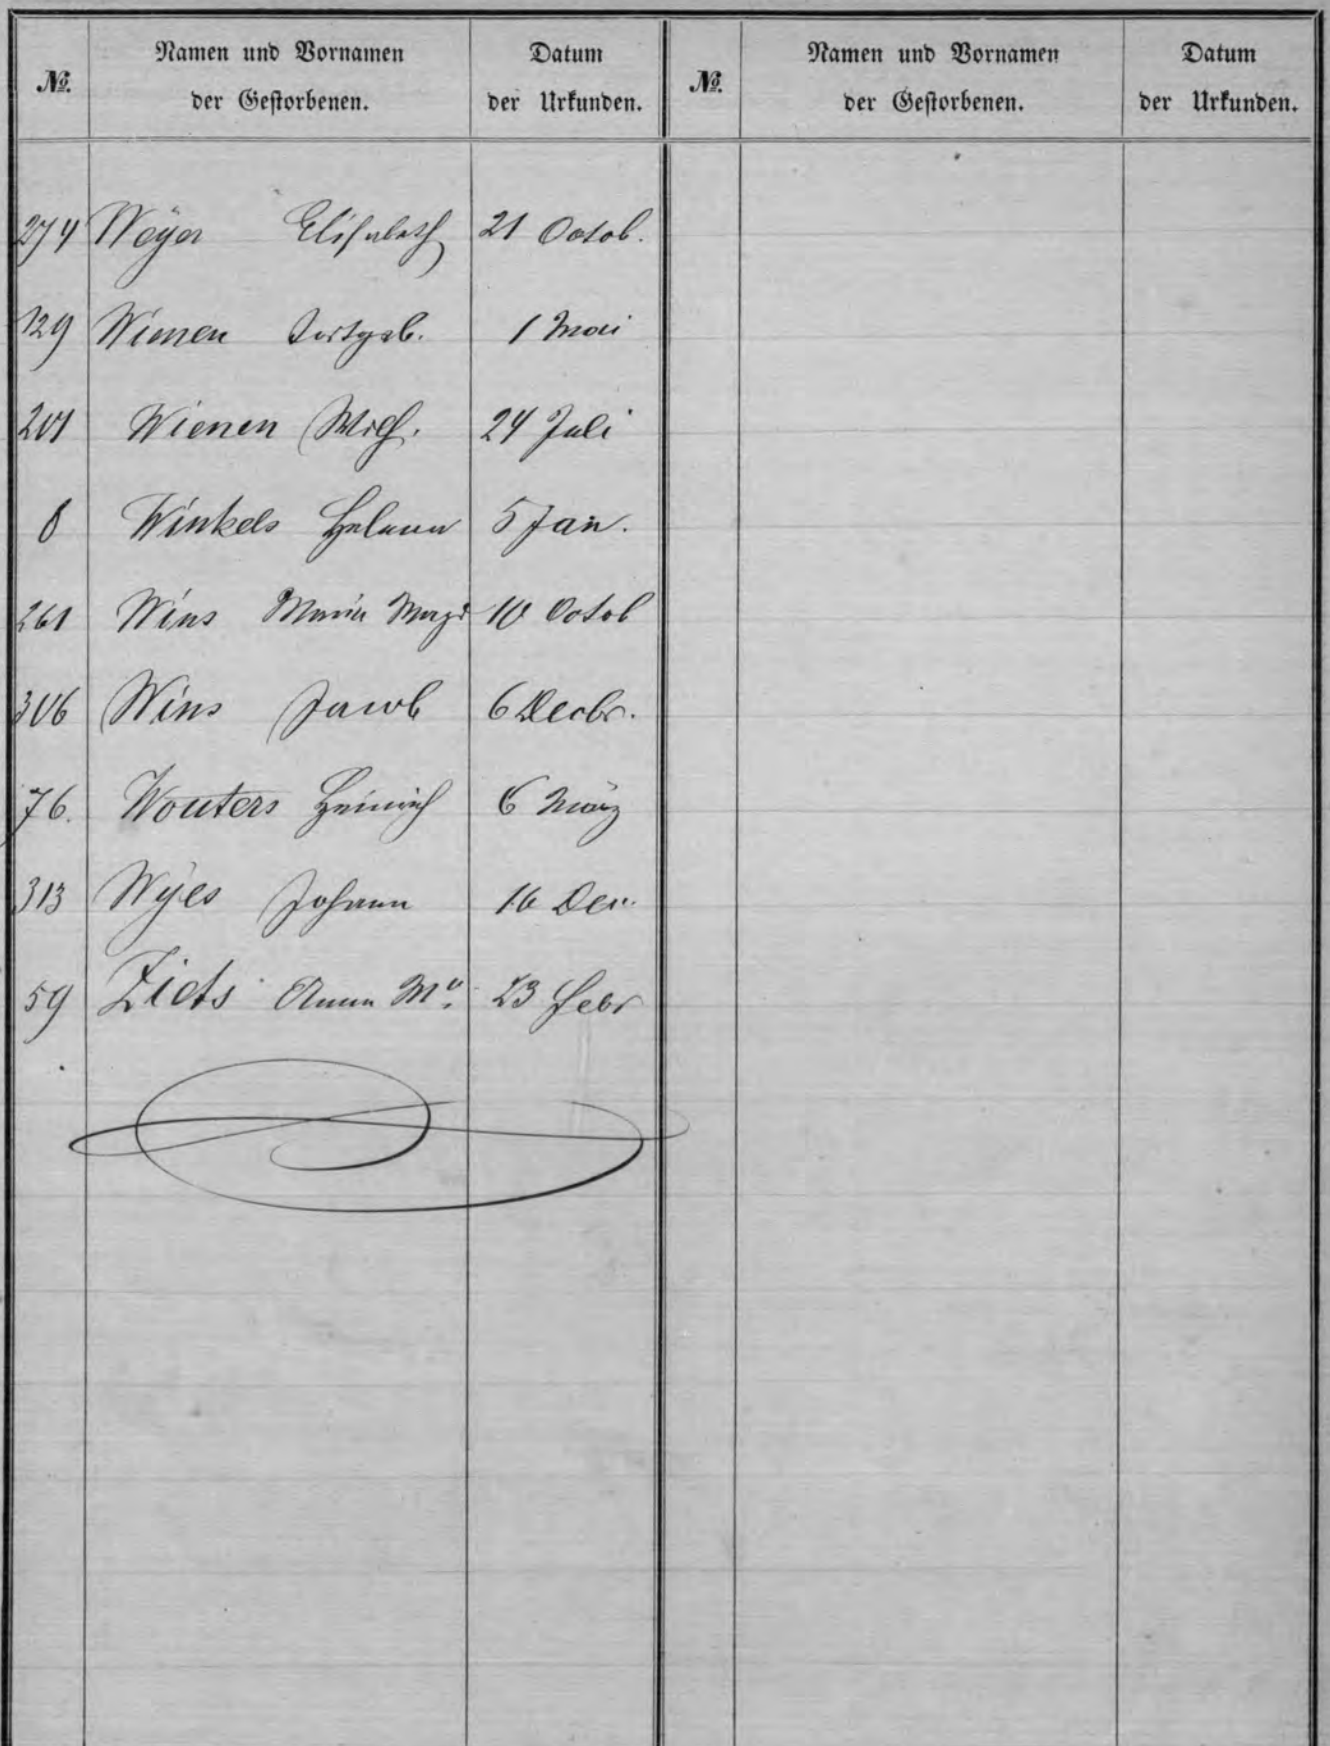 №. Namen und Vornamen der Gestorbenen. Datum der Urkunden. №. Namen und Vornamen der Gestorbenen. Datum der Urkunden.
274 Weÿer Elisabeth 21 Octob.
129 Wienen Todtgeb. 1 Mai
201 Wienen Wilh. 24 Juli
8 Winkels Helena 5 Jan.
261 Wins Maria Magd 10 Octob
306 Wins Jacob 6 Decbr.
76. Wouters Heinrich 6 März
313 Wÿes Johann 16 Dec.
59 Ziets Anna Mᵃ. 23 Febr